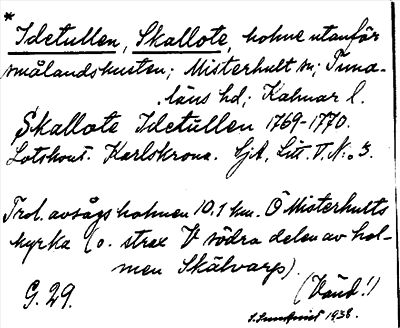 *
Idetullen, Skallote, holme utanför
smålandskusten; Misterhult sn; Tuna-
läns hd; Kalmar l.
Skallote Idetullen 1769-1770.
Lotskont. Karlskrona. SjA, Litt. V. N:o 3.
Trol. avsågs holmen 10,1 km. Ö Misterhults
kyrka (o. strax V södra delen av hol-
men Skälvarp).
(Vänd!)
G. 29.
S. Lundquist 1938.